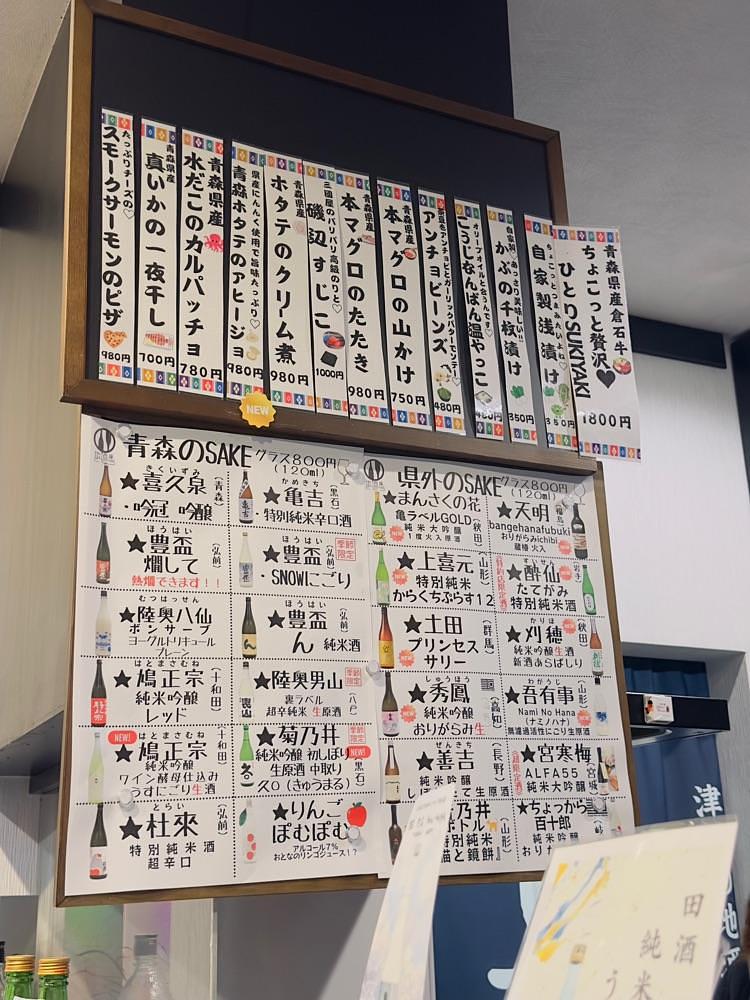 青森県産倉石牛
ちょこっと贅沢♥
ひとりSUKIYAKI
1800円
自家製浅漬け
350円
自家製♡あっさり美味しい!!
かぶの千枚漬け
350円
オリーブオイルと合うんです♡
こうじなんばん温やっこ
480円
アンチョビーンズ
480円
青森県産
本マグロの山かけ
750円
青森県産
本マグロのたたき
980円
三國屋のパリパリ高級のりと♡
磯辺すじこ
1000円
青森県産
ホタテのクリーム煮
980円
県産にんにく使用で旨味たっぷり♡
青森ホタテのアヒージョ
980円
青森県産
水だこのカルパッチョ
780円
青森県産
真いかの一夜干し
700円
たっぷりチーズの♡
スモークサーモンのピザ
980円
NEW
青森のSAKE
グラス800円
(120ml)
きくいずみ
★喜久泉
(青森)
・吟冠 吟醸
かめきち
★亀吉
(黒石)
・特別純米辛口酒
ほうはい
★豊盃
(弘前)
燗して
熱燗できます!!
ほうはい
★豊盃
(弘前)
季節限定
・SNOWにごり
むつはっせん
★陸奥八仙
(八戸)
ポンサーブ
ヨーグルトリキュール
プレーン
ほうはい
★豊盃
(弘前)
ん 純米酒
はとまさむね
★鳩正宗
(十和田)
純米吟醸
レッド
★陸奥男山
季節限定
(八戸)
裏ラベル
超辛純米 生原酒
NEW!
はとまさむね
★鳩正宗
(十和田)
純米吟醸
ワイン酵母仕込み
うすにごり生酒
★菊乃井
季節限定
NEW!
(黒石)
純米吟醸 初しぼり
生原酒 中取り
久〇(きゅうまる)
とらい
★杜來
(弘前)
特別純米酒
超辛口
★りんご
ぽむぽむ
アルコール7%
おとなのリンゴジュース!?
県外のSAKE
グラス800円
(120ml)
★まんさくの花
(秋田)
亀ラベルGOLD
純米大吟醸
1度火入原酒
★天明
(福島)
bangehanafubuki
おりがらみichibi
蔵椿 火入
★上喜元
(山形)
特別純米
からくちぷらす12
すいせん
★酔仙
(岩手)
たてがみ
特別純米酒
★土田
(群馬)
プリンセス
サリー
かりほ
★刈穂
(秋田)
純米吟醸生酒
新酒あらばしり
しゅうほう
★秀鳳
純米吟醸
おりがらみ生
わがうじ
★吾有事
(山形)
Nami No Hana
(ナミノハナ)
無濾過活性にごり生原酒
ぜんきち
★善吉
(長野)
純米吟醸
しぼりたて生原酒
★宮寒梅
(宮城)
ALFA55
純米大吟醸
乃井
(山形)
猫と鏡餅
★ちょっから
百十郎
田酒
純米